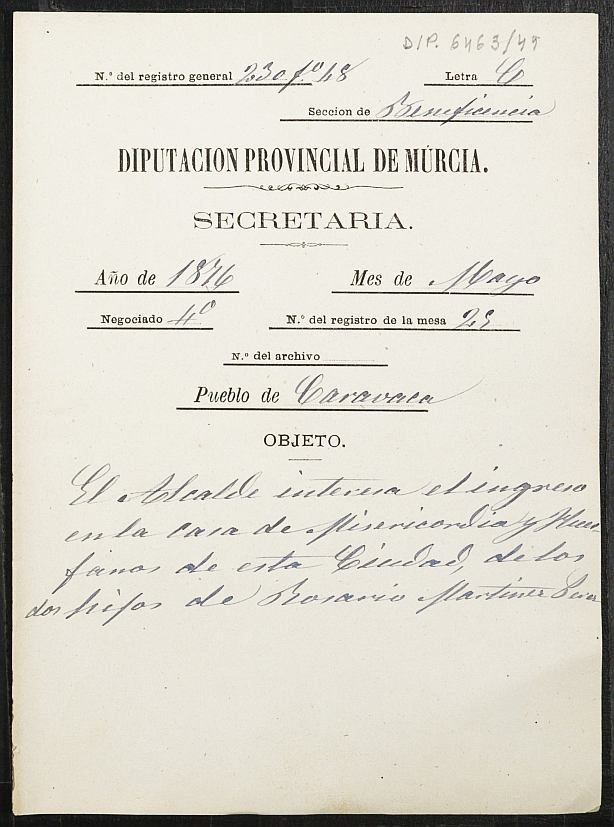 DIP. 6463/49
N.º del registro general 230 f.º 48 Letra C
Seccion de Beneficencia
DIPUTACION PROVINCIAL DE MÚRCIA.
SECRETARIA.
Año de 1876 Mes de Mayo
Negociado 4º N.º del registro de la mesa 29
N.º del archivo
Pueblo de Caravaca
OBJETO.
El Alcalde interesa el ingreso
en la casa de Misericordia y Huer-
fanos de esta Ciudad, de los
dos hijos de Rosario Martinez